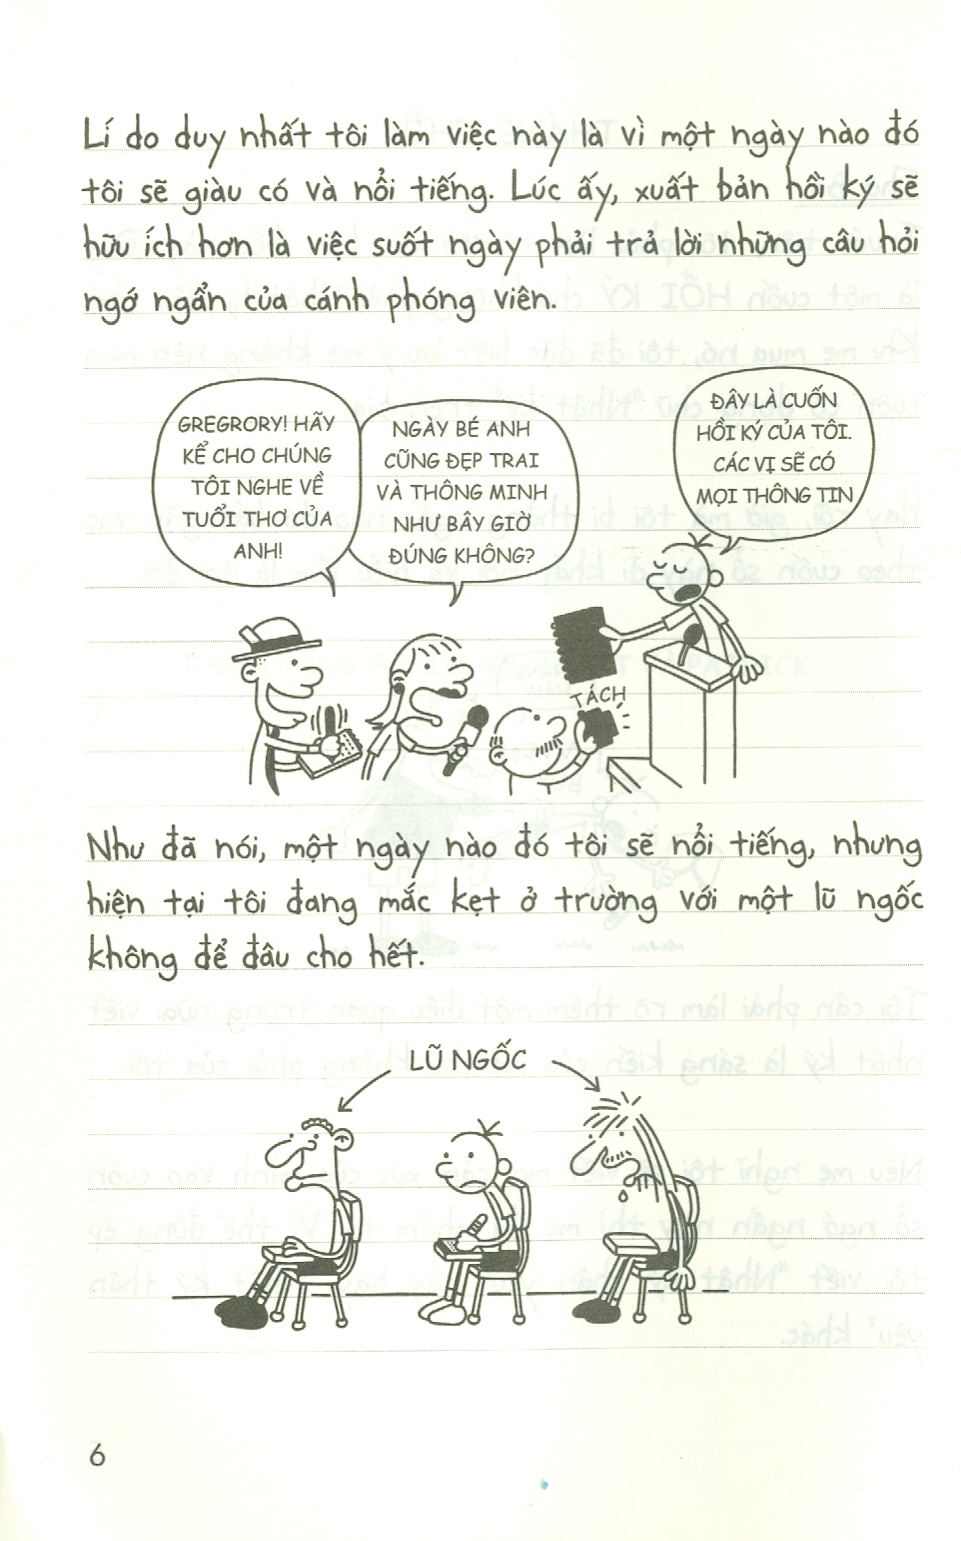 Lí do duy nhất tôi làm việc này là vì một ngày nào đó
tôi sẽ giàu có và nổi tiếng. Lúc ấy, xuất bản hồi ký sẽ
hữu ích hơn là việc suốt ngày phải trả lời những câu hỏi
ngớ ngẩn của cánh phóng viên.
GREGRORY! HÃY
KỂ CHO CHÚNG
TÔI NGHE VỀ
TUỔI THƠ CỦA
ANH!
NGÀY BÉ ANH
CŨNG ĐẸP TRAI
VÀ THÔNG MINH
NHƯ BÂY GIỜ
ĐÚNG KHÔNG?
ĐÂY LÀ CUỐN
HỒI KÝ CỦA TÔI.
CÁC VỊ SẼ CÓ
MỌI THÔNG TIN
TÁCH
Như đã nói, một ngày nào đó tôi sẽ nổi tiếng, nhưng
hiện tại tôi đang mắc kẹt ở trường với một lũ ngốc
không để đâu cho hết.
LŨ NGỐC
6